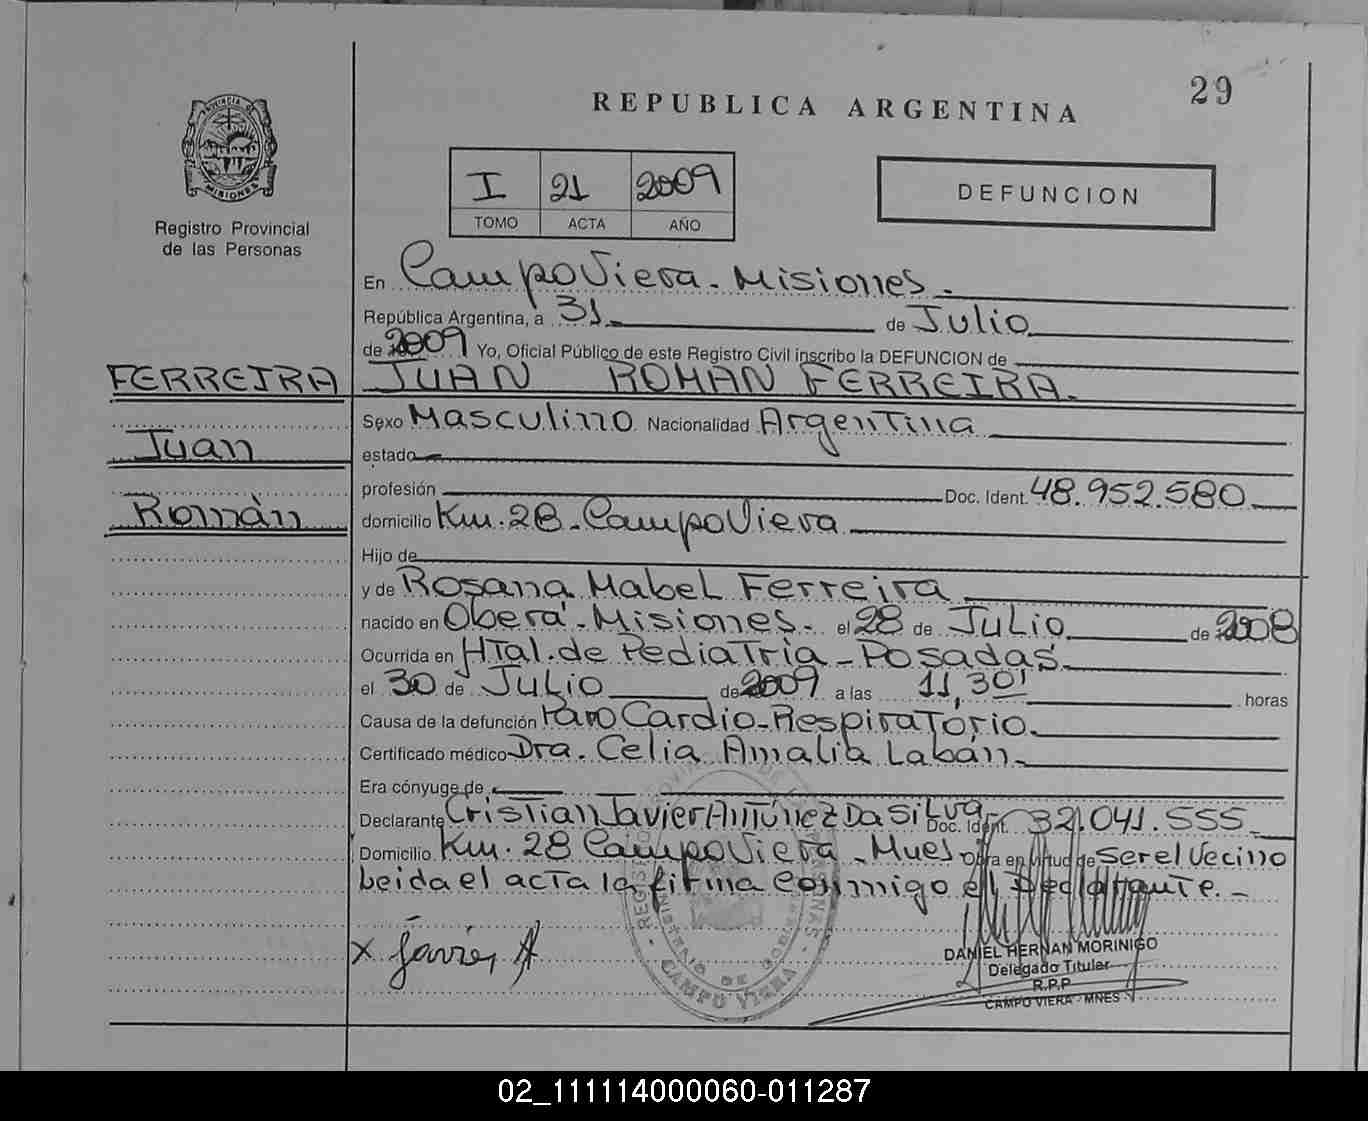 29
REPUBLICA ARGENTINA
PROVINCIA DE MISIONES
Registro Provincial
de las Personas
I 21 2009
TOMO ACTA AÑO
DEFUNCION
En Campo Viera - Misiones.
República Argentina, a 31 de Julio
de 2009 Yo, Oficial Público de este Registro Civil inscribo la DEFUNCION de
FERREIRA JUAN ROMAN FERREIRA.
Sexo Masculino Nacionalidad Argentina
Juan
estado
profesión Doc. Ident. 48.952.580
Román
domicilio Km. 28 - Campo Viera
Hijo de
y de Rosana Mabel Ferreira
nacido en Oberá - Misiones - el 28 de Julio de 2008
Ocurrida en HTal. de Pediatría - Posadas.
el 30 de Julio de 2009 a las 11,30' horas
Causa de la defunción Paro Cardio-Respiratorio.
Certificado médico Dra. Celia Amalia Labán.
Era cónyuge de
Declarante Cristian Javier Antúnez Da Silva Doc. Ident. 32.041.555
Domicilio Km. 28 Campo Viera - Mnes Obra en virtud de Ser el Vecino
Leida el acta la firma conmigo el Declarante. -
X Javier A
MINISTERIO DE GOBIERNO
CAMPO VIERA
DANIEL HERNAN MORINIGO
Delegado Titular
R.P.P
CAMPO VIERA - MNES
02_111114000060-011287